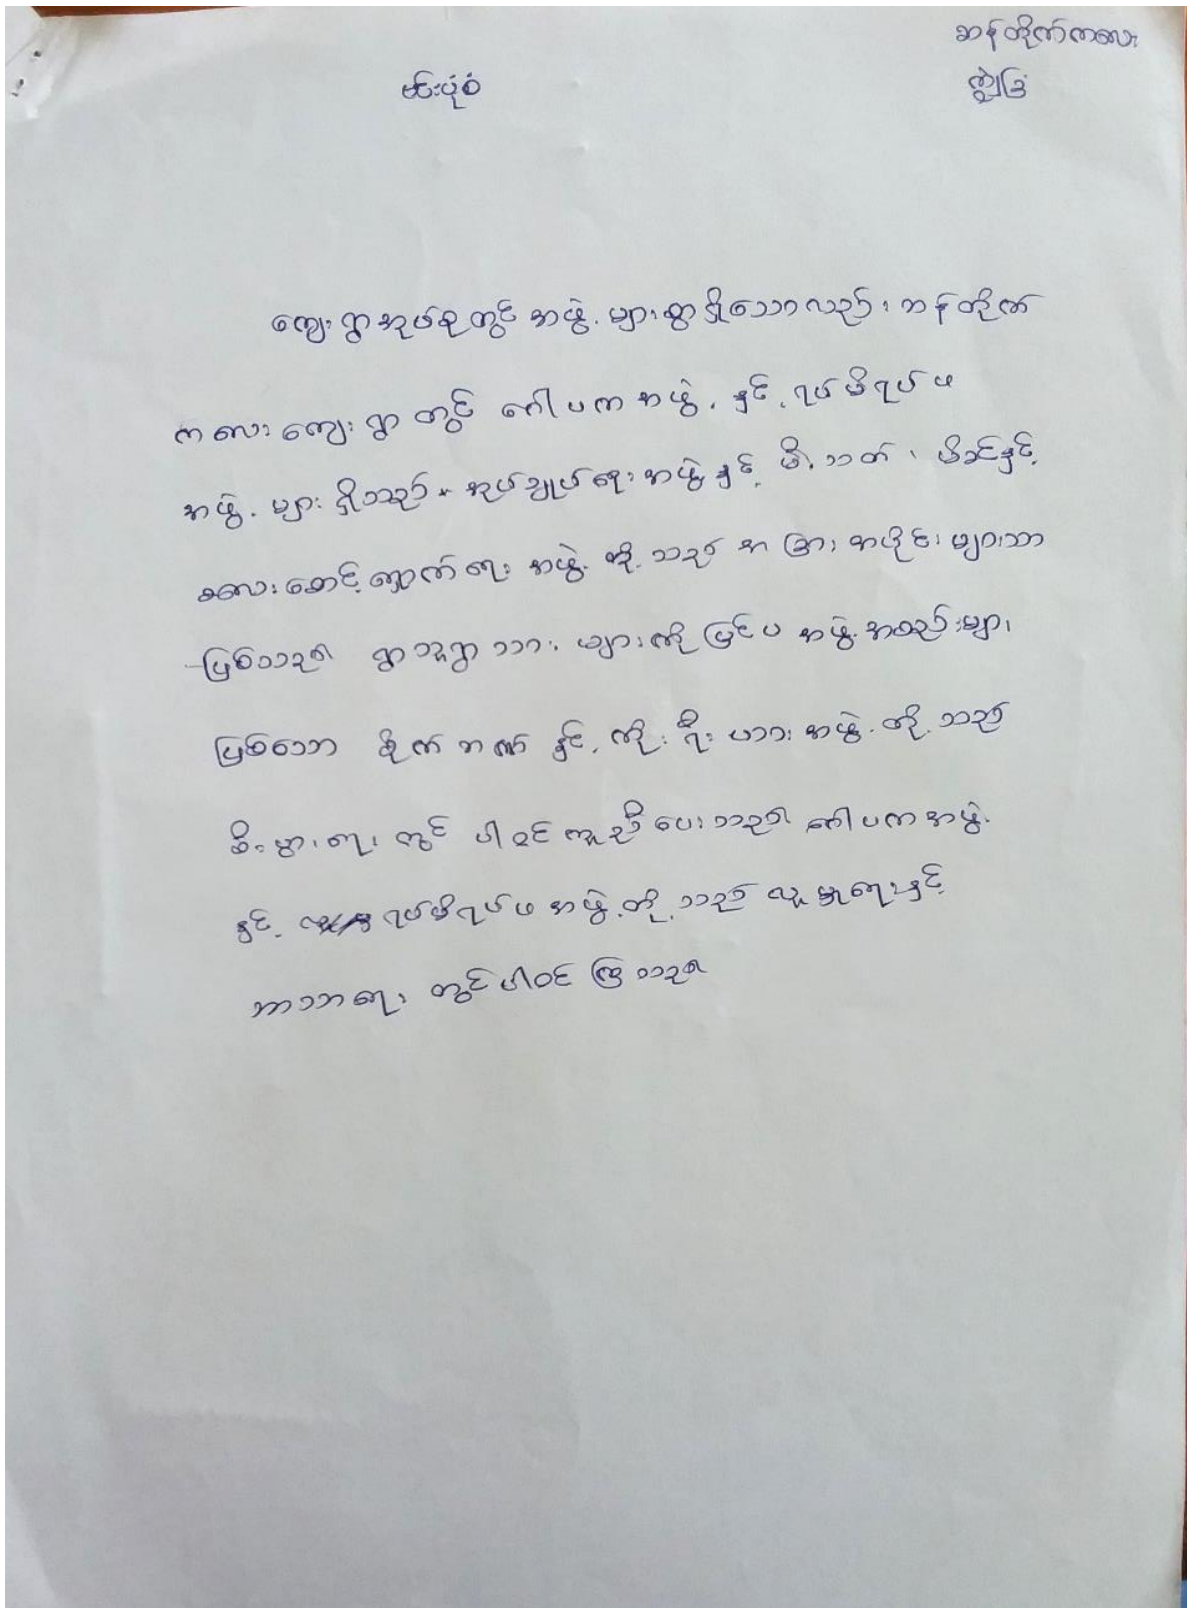 ဆန်တိုက်ကလေး
ကျွဲခြံ
ဗင်းပုံစံ
ကျေးရွာအုပ်စုတွင် အဖွဲ့များစွာရှိသောလည်း ဘန်တိုက်
ကလေးကျေးရွာတွင် ဂေါပကအဖွဲ့နှင့် ရပ်မိရပ်ဖ
အဖွဲ့များရှိသည်။ အုပ်ချုပ်ရေးအဖွဲ့နှင့် မီးသတ်၊ မိခင်နှင့်
ကလေးစောင့်ရှောက်ရေး အဖွဲ့တို့သည် အခြားအပိုင်းများသာ
ဖြစ်သည်။ ရွာသူရွာသားများကို ပြင်ပ အဖွဲ့အစည်းများ
ဖြစ်သော စိုက်ဘဏ် နှင့် ကိုးရီးယား အဖွဲ့တို့သည်
စီးပွားရေးတွင် ပါဝင်ကူညီပေးသည်။ ဂေါပကအဖွဲ့
နှင့် ရပ်မိရပ်ဖအဖွဲ့တို့သည် လူမှုရေးနှင့်
ဘာသာရေးတွင်ပါဝင်ကြသည်။